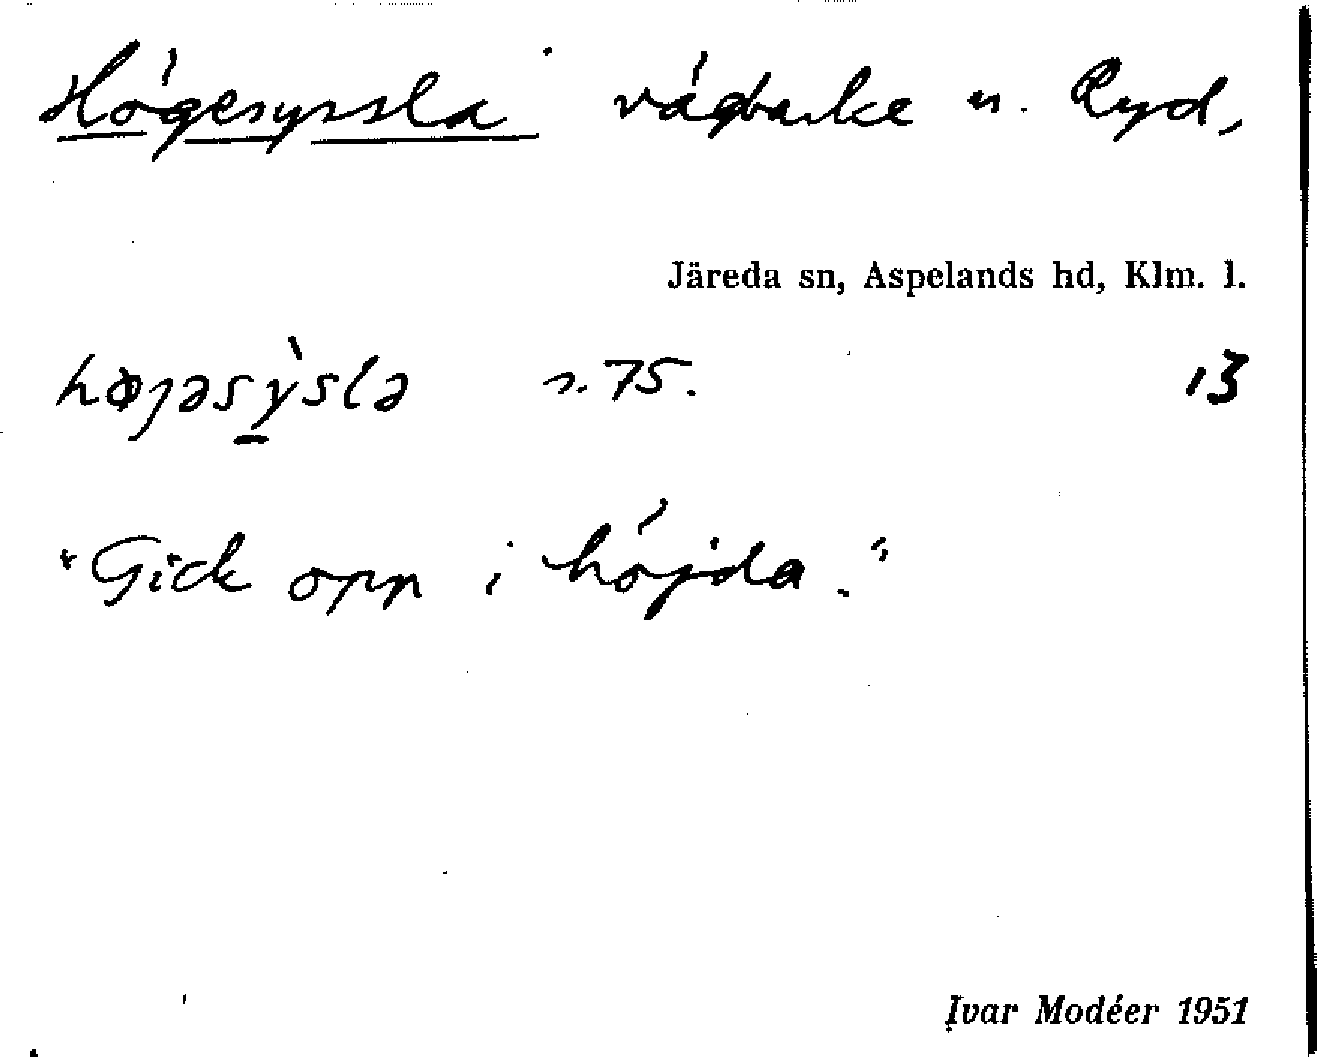 Högesyssla vägbacke n. Ryd,
Järeda sn, Aspelands hd, Klm. l.
høȷəsỳslə s. 75. 13
"Gick opp i höjda."
Ivar Modéer 1951